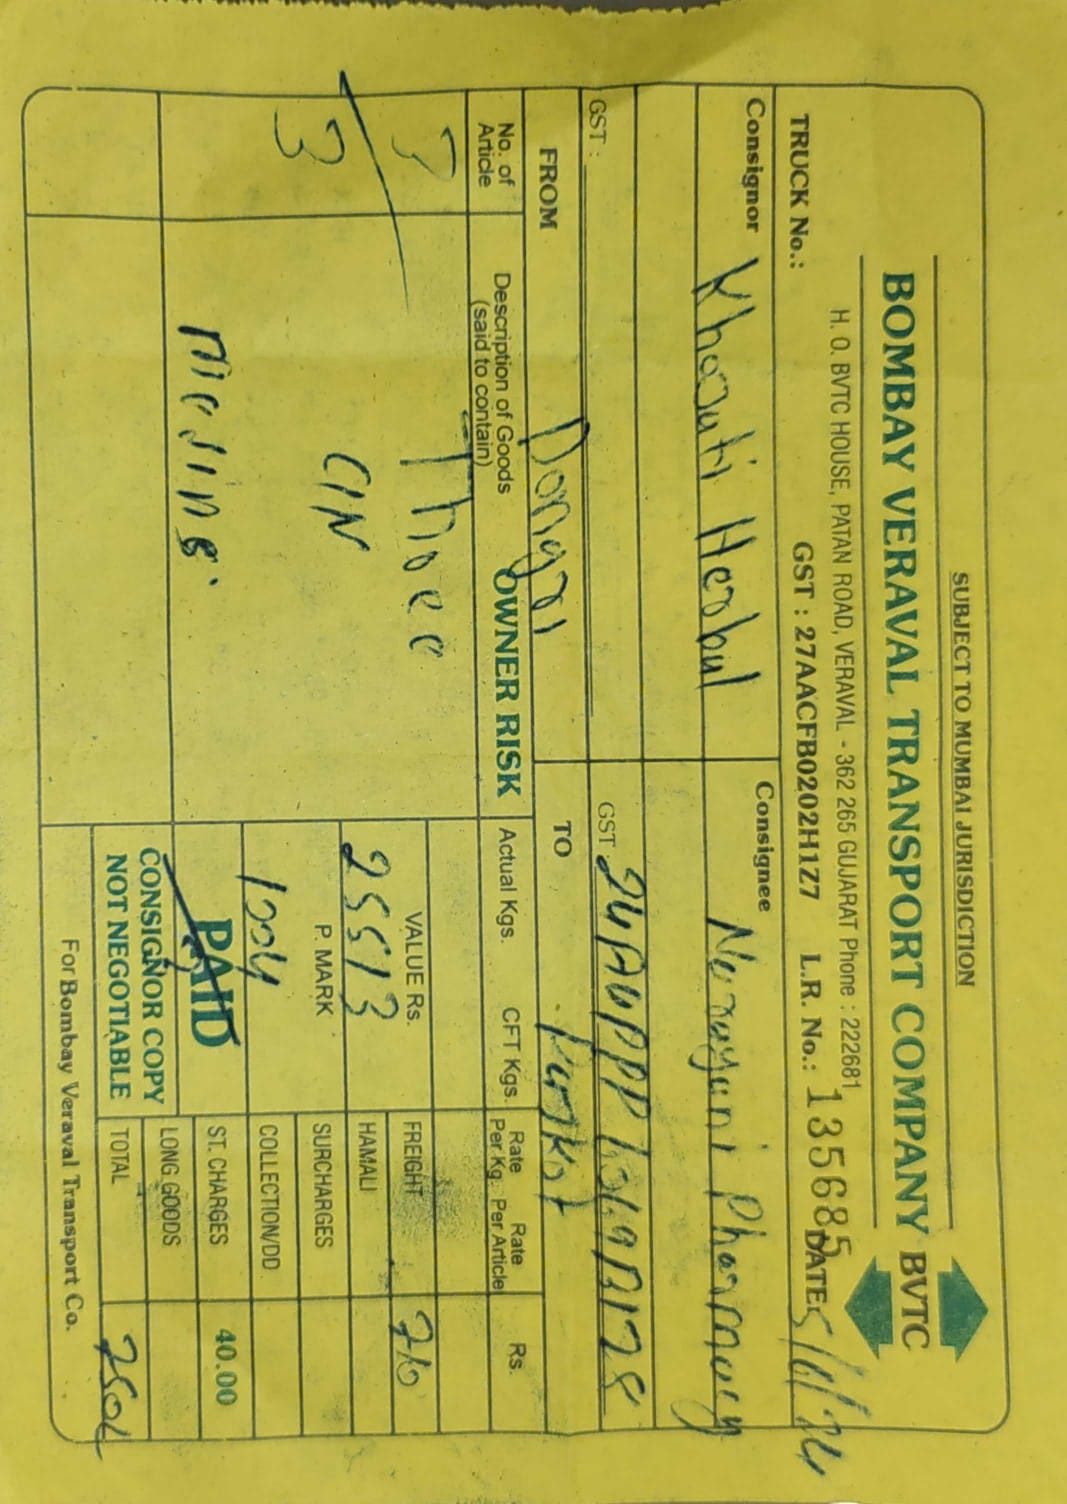 SUBJECT TO MUMBAI JURISDICTION
BOMBAY VERAVAL TRANSPORT COMPANY BVTC
H. O. BVTC HOUSE, PATAN ROAD, VERAVAL - 362 265 GUJARAT Phone : 222681
TRUCK No.: GST : 27AACFB0202H1Z7 L.R. No.: 135685 DATE 5/11/24
Consignor Consignee
GST : GST
FROM Dongri TO
No. of Article Description of Goods (said to contain) OWNER RISK Actual Kgs. CFT Kgs. Rate Per Kg. Rate Per Article Rs.
3 Three
VALUE Rs. FREIGHT
25513 HAMALI
3 CIN P. MARK SURCHARGES
COLLECTION/DD
1004
PAID ST. CHARGES 40.00
CONSIGNOR COPY LONG GOODS
NOT NEGOTIABLE TOTAL
For Bombay Veraval Transport Co.